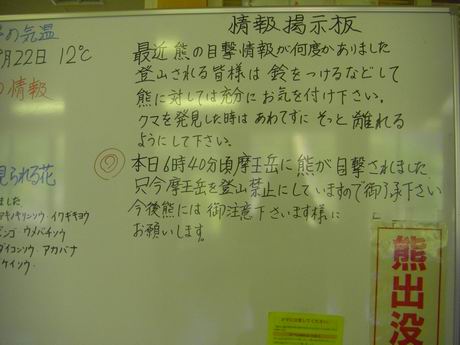 情報掲示板
最近熊の目撃情報が何度かありました
登山される皆様は鈴をつけるなどして
熊に対しては充分にお気を付け下さい。
クマを発見した時はあわてずにそっと離れる
ようにして下さい。
◎本日6時40分頃摩王岳に熊が目撃されました
只今摩王岳を登山禁止にしていますので御了承下さい
今後熊には御注意下さいます様に
お願いします。
の気温
月22日 12℃
の情報
見られる花
ました
アキノキリンソウ・イワギキョウ
ウメバチソウ
ダイコンソウ アカバナ
熊出没